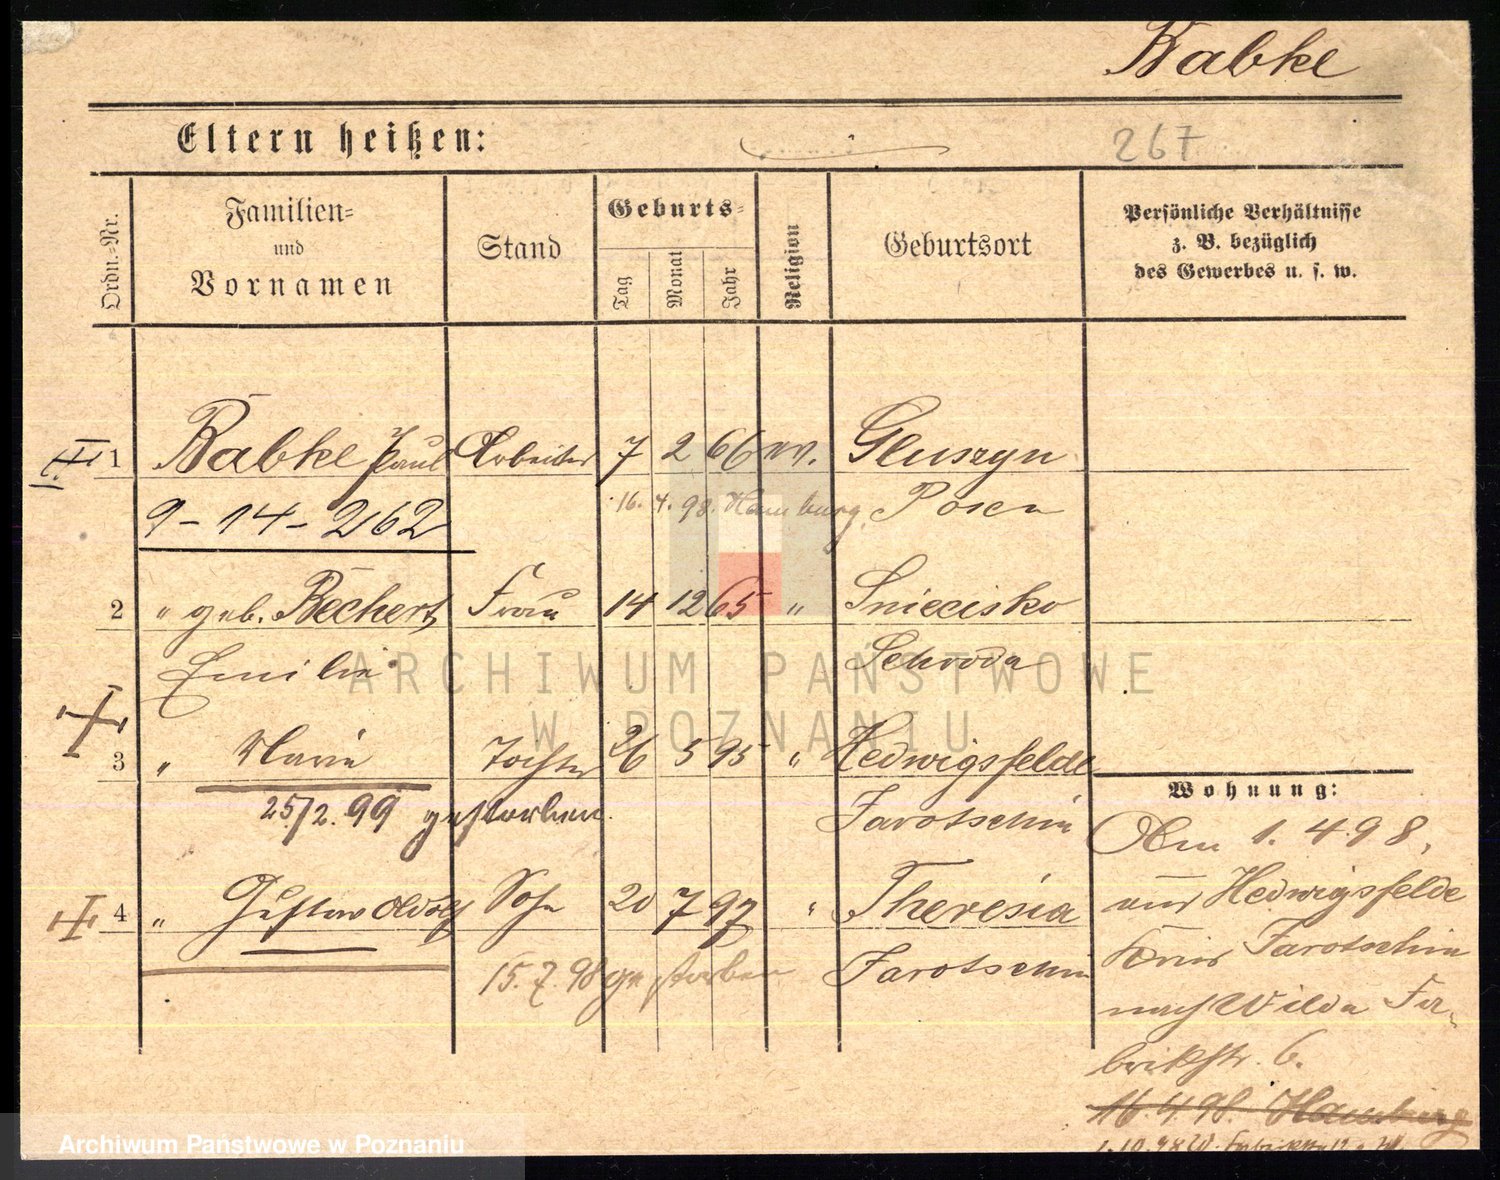 Babke
Eltern heißen:
267
Ordn.-Nr.
Familien-
und
Vornamen
Stand
Geburts-
Tag
Monat
Jahr
Religion
Geburtsort
Persönliche Verhältnisse
z. B. bezüglich
des Gewerbes u. s. w.
1 Babke Paul Arbeiter 7 2 66 ev. Gluszyn
9-14-262 16. 4. 98. Hamburg. Posen
2 " geb. Bechert Frau 14 12 65 " Sniecisko
Emilie Schroda
3 " Marie Tochter 26 5 95 " Hedwigsfelde
25/2. 99 gestorben. Jarotschin
4 " Gustav Adolf Sohn 20 7 97 " Theresia
15. 7. 98 gestorben Jarotschin
Wohnung:
Am 1. 4 98,
aus Hedwigsfelde
Kreis Jarotschin
nach Wilda Fa-
brikstr. 6.
16. 4. 98. Hamburg
1. 10. 98
ARCHIWUM PAŃSTWOWE
W POZNANIU
Archiwum Państwowe w Poznaniu